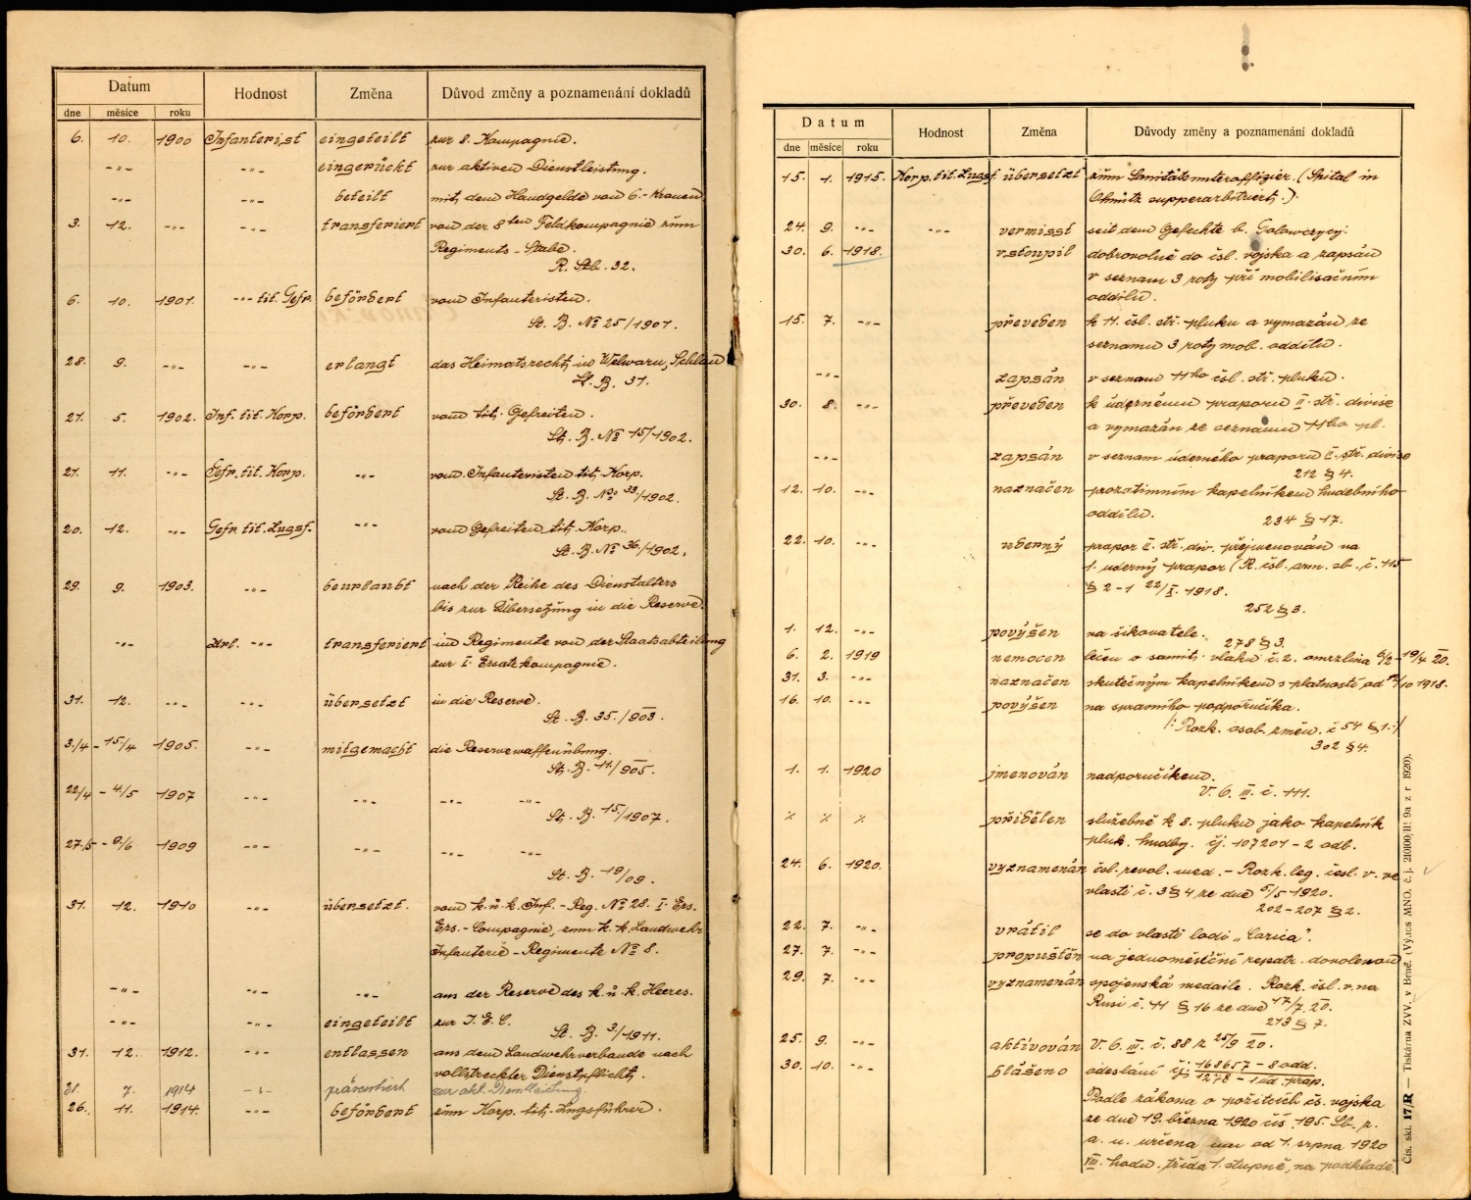 Datum Hodnost Změna Důvod změny a poznamenání dokladů
dne měsíce roku
6. 10. 1900 Infanterist eingeteilt zur 8. Kompagnie.
-"- -"- eingerückt zur aktiven Dienstleistung.
-"- -"- beteilt mit dem Handgelde von 6.- Kronen
3. 12. -"- -"- transferiert von der 8ten Feldkompagnie zum
Regiments-Stabe.
R. Stb. 32.
6. 10. 1901. -"- tit. Gefr. befördert vom Infanteristen.
St. B. No 25/1901.
28. 9. -"- -"- erlangt das Heimatsrecht in Welwarn, Schlan
St. B. 31.
21. 5. 1902. Inf. tit. Korp. befördert vom tit. Gefreiten.
St. B. No 15/1902.
21. 11. -"- Gefr. tit. Korp. -"- vom Infanteristen tit. Korp.
St. B. No 33/1902.
20. 12. -"- Gefr. tit. Zugsf. -"- vom Gefreiten tit. Korp.
St. B. No 36/1902.
29. 9. 1903. -"- beurlaubt nach der Reihe des Dienstalters
bis zur Übersetzung in die Reserve.
-"- Url. -"- transferiert im Regimente von der Staatsabteilung
zur I. Ersatzkompagnie.
31. 12. -"- -"- übersetzt in die Reserve.
St. B. 35./903.
3./4 - 15/4 1905. -"- mitgemacht die Reservewaffenübung.
St. B. 11/905.
22/4 - 4/5 1907 -"- -"- -"- -"-
St. B. 15/1907.
27/5 - 9/6 1909 -"- -"- -"- -"-
St. B. 19/09.
31. 12. 1910 -"- übersetzt. vom k. u. k. Inf.-Reg. No 28. I. Ers.
Ers.-Compagnie, zum k. k. Landwehr
Infanterie-Regimente No 8.
-"- -"- -"- aus der Reserve des k. u. k. Heeres.
-"- -"- eingeteilt zur I. E. C.
St. B. 3/1911.
31. 12. 1912. -"- entlassen aus dem Landwehrverbande nach
vollstreckter Dienstpflicht.
31. 7. 1914 -"- präsentiert zur akt. Dienstleistung
26. 11. 1914. -"- befördert zum Korp. tit. Zugsführer.
Datum Hodnost Změna Důvody změny a poznamenání dokladů
dne měsíce roku
15. 1. 1915. Korp. tit. Zugsf. übersetzt zum Sanitätsunteroffizier. (Spital in
Olmütz supperarbitriert.)
24. 9. -"- -"- vermisst seit dem Gefechte b. Golowczycy.
30. 6. 1918. vstoupil dobrovolně do čsl. vojska a zapsán
v seznam 3 roty při mobilisačním
oddílu.
15. 7. -"- převeden k 11. čsl. stř. pluku a vymazán ze
seznamu 3 roty mob. oddílu.
-"- zapsán v seznam 11ho čsl. stř. pluku.
30. 8. -"- převeden k údernému praporu II. stř. divise
a vymazán ze seznamu 11ho pl.
-"- zapsán v seznam úderného praporu II. stř. divise
212 § 4.
12. 10. -"- naznačen prozatimním kapelníkem hudebního
oddílu. 234 § 17.
22. 10. -"- uderný prapor II. stř. div. přejmenován na
1. uderný prapor (R. čsl. arm. sb. č. 115
§ 2-1 22/X. 1918.
252 § 3.
1. 12. -"- povýšen na šikovatele.
278 § 3.
6. 2. 1919 nemocen léčen o samit. vlaku č. 2. omrzlina 6/2 - 19/4 20.
31. 3. -"- naznačen skutečným kapelníkem s platností od 12/10 1918.
16. 10. -"- povýšen na správního podporučíka.
/: Rozk. osob. změn. č 54 § 1. :/
302 § 4.
1. 1. 1920 jmenován nadporučíkem.
V. 6. III. č. 111.
% % % přidělen služebně k 8. pluku jako kapelník
pluk. hudby. čj. 107201-2 odb.
24. 6. 1920. vyznamenán čsl. revol. med. - Rozk. leg. česl. v. ve
vlasti č. 3 § 4 ze dne 6/5 1920.
202-207 § 2.
22. 7. -"- vrátil se do vlasti lodi „Carica".
27. 7. -"- propuštěn na jednoměsíční repatr. dovolenou
29. 7. -"- vyznamenán spojenská medaile. Rozk. čsl. v. na
Rusi č. 11 § 16 ze dne 17/7. 20.
213 § 7.
25. 9. -"- aktivován V. 6. III. č. 88 z 25/9 20.
30. 10. -"- hlášeno odeslaní čj: 168657-8 odd.
1278-1 ud. prap.
Podle zákona o požitcích čs. vojska
ze dne 19. března 1920 čís. 195. Sb. z.
a. n. určena mu od 1. srpna 1920
VIII. hodn. třída 1. stupně, na podkladě
Čís. skl. 17/R — Tiskárna ZVV. v Brně. (Výnos MNO. č. j. 210100/II! 9a z r 1920).